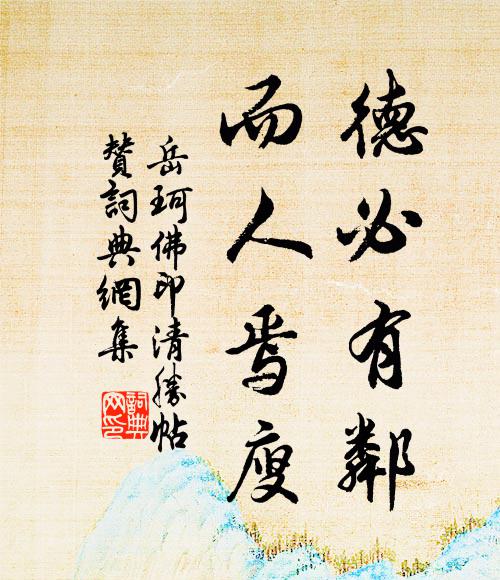 德必有鄰
而人焉廋
岳珂佛印清勝帖
贊詞典網集
詞典網印